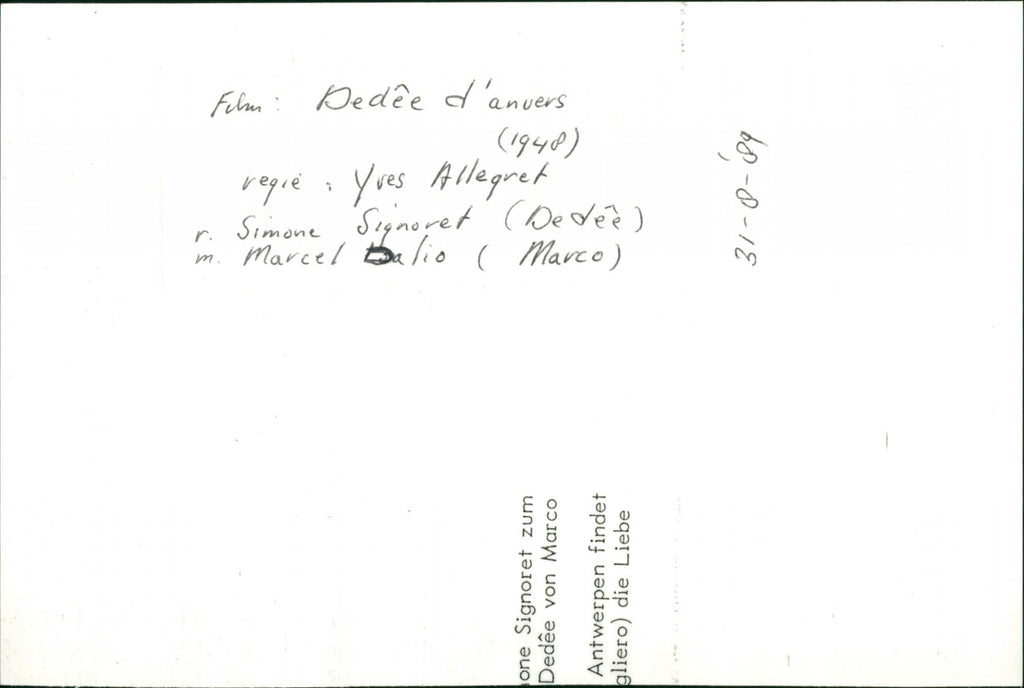 Film: Dedêe d'anvers
(1948)
regie: Yves Allegret
r. Simone Signoret (Dedêe)
m. Marcel Dalio (Marco)
31-8-'89
one Signoret zum
Dedêe von Marco
Antwerpen findet
gliero) die Liebe